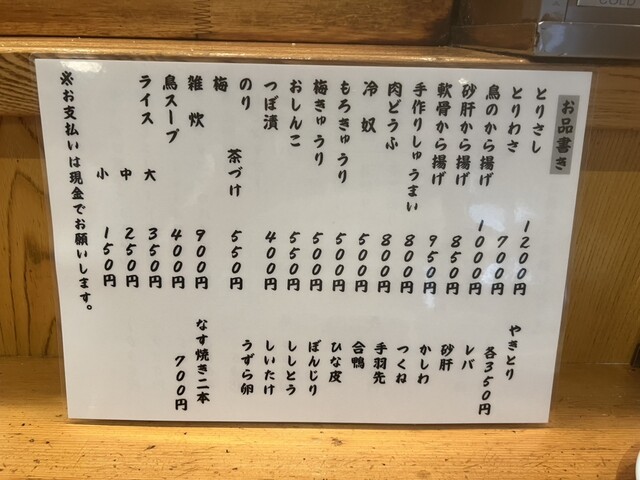 お品書き
とりさし 1200円
とりわさ 700円
鳥のから揚げ 1000円
砂肝から揚げ 850円
軟骨から揚げ 950円
手作りしゅうまい 800円
肉どうふ 800円
冷奴 500円
もろきゅうり 500円
梅きゅうり 500円
おしんこ 550円
つぼ漬 400円
のり
茶づけ 550円
梅
雑炊 900円
鳥スープ 400円
ライス 大 350円
中 250円
小 150円
※お支払いは現金でお願いします。
やきとり
各350円
レバ
砂肝
かしわ
つくね
手羽先
合鴨
ひな皮
ぼんじり
ししとう
しいたけ
うずら卵
なす焼き二本
700円